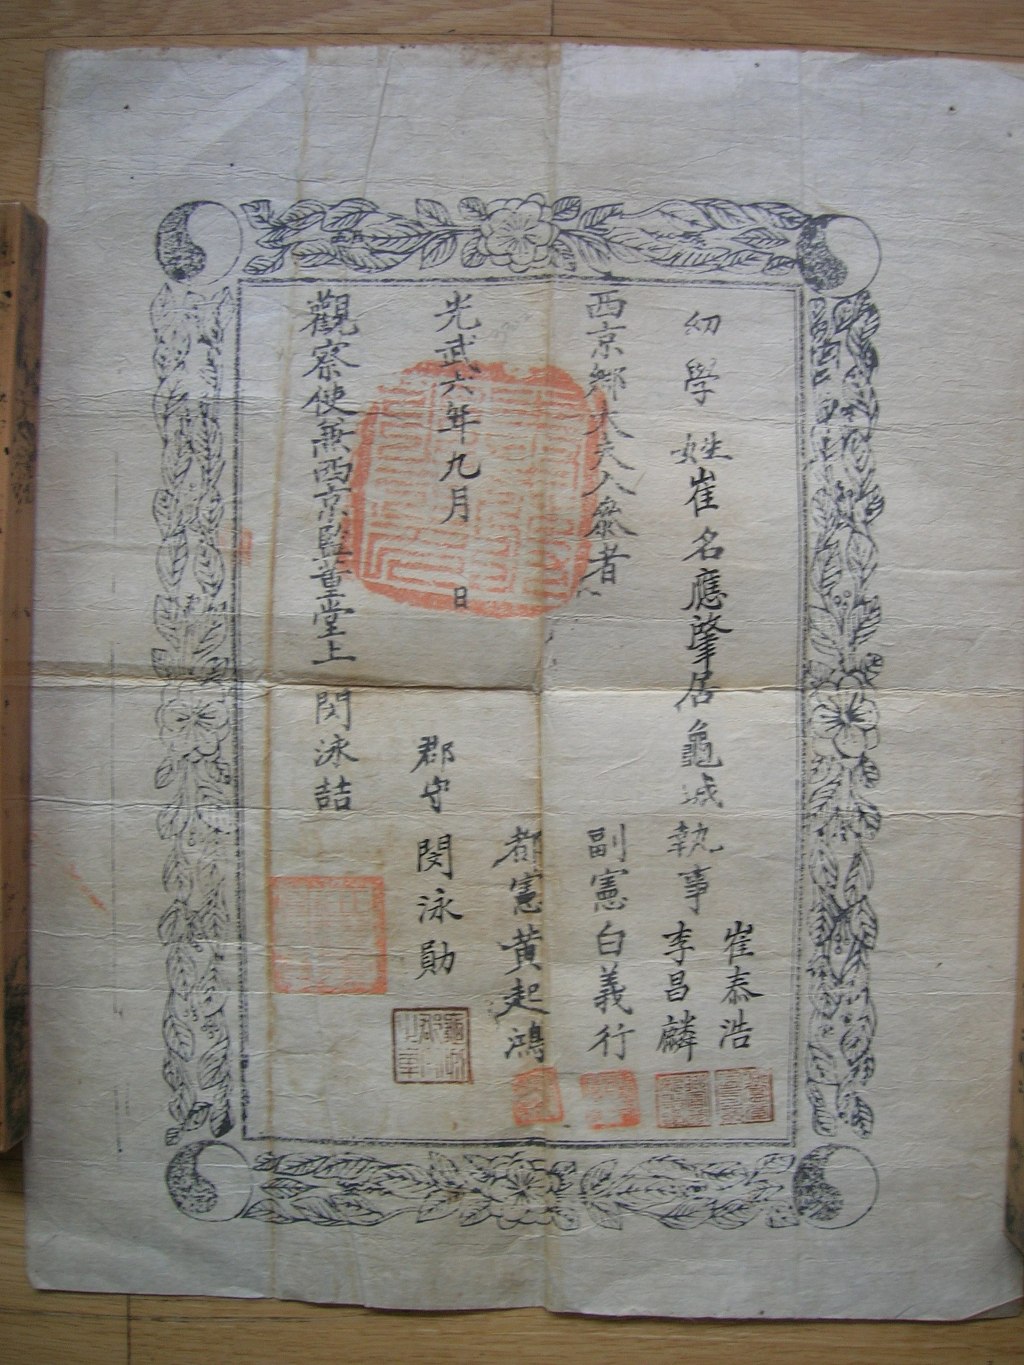 幼學 姓崔名應肇居龜城 執事 崔泰浩
李昌麟
西京鄕大夫八叅者
副憲白義行
都憲黄起鴻
光武六年九月 日
郡守 閔泳勛
觀察使兼西京監董堂上 閔泳喆